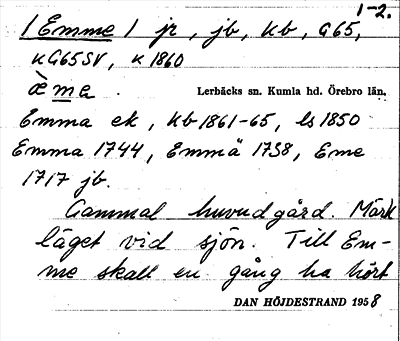 1-2.
/Emme/ jr, jb, kb, G65,
KG65SV, K 1860
è̀me . Lerbäcks sn. Kumla hd. Örebro län.
Emma ek, kb 1861-65, ls 1850
Emma 1744, Emmä 1738, Eme
1717 jb.
Gammal huvudgård. Mark
läget vid sjön. Till Em-
me skall en gång ha hört
DAN HÖJDESTRAND 1958